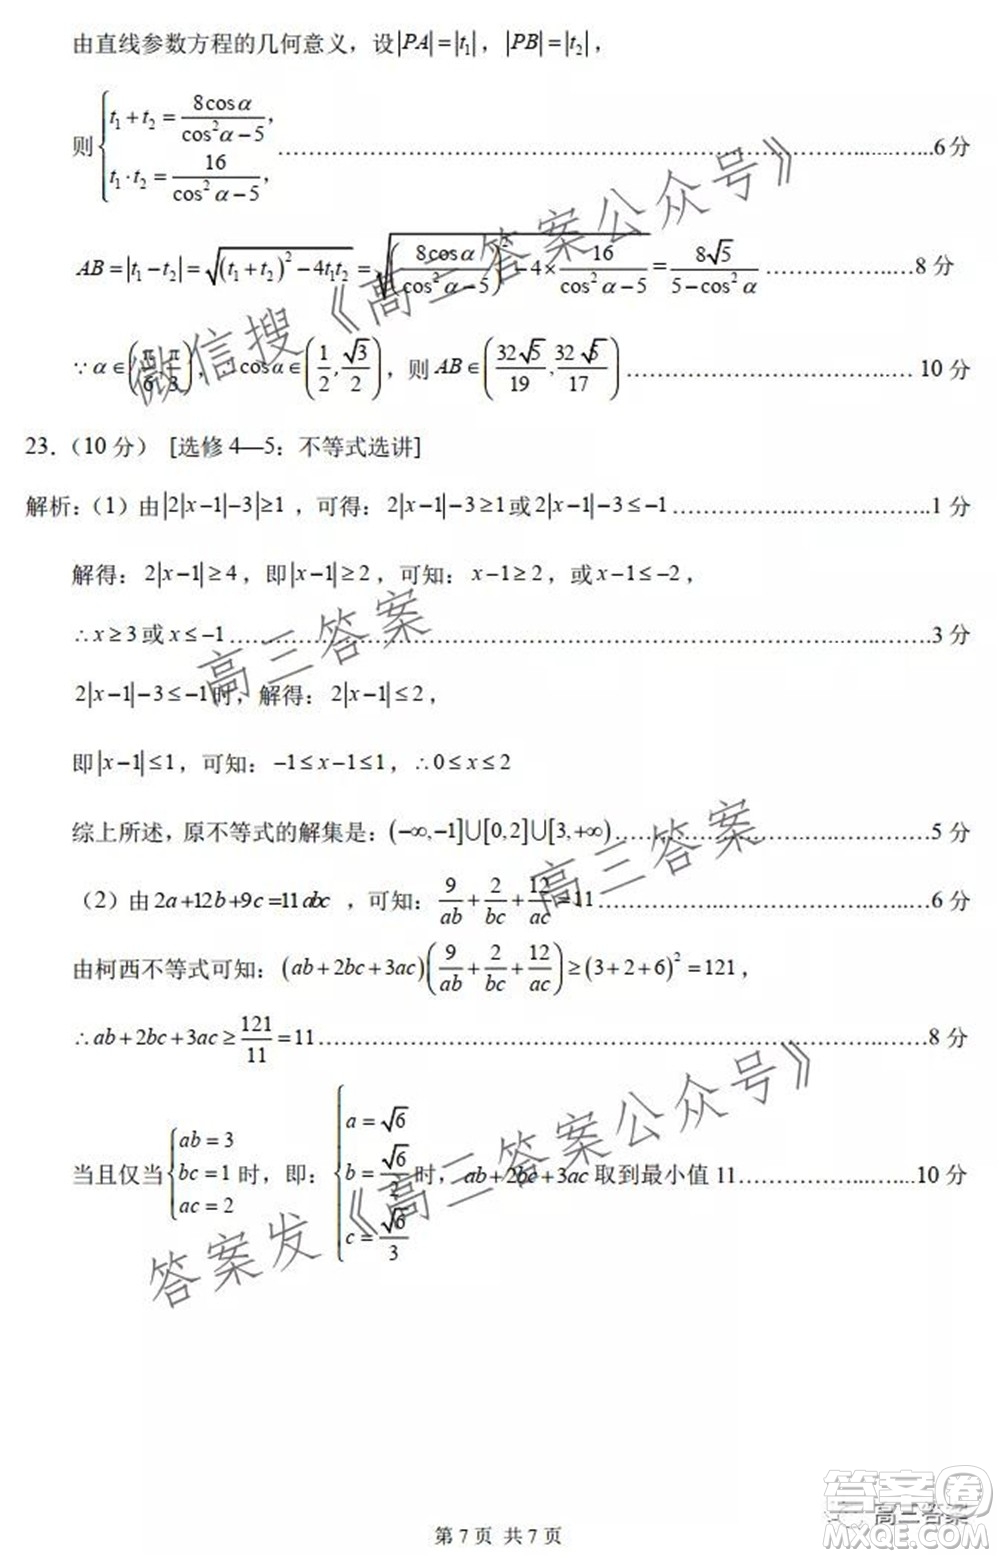 由直线参数方程的几何意义，设|PA|=|t₁|，|PB|=|t₂|，
则{t₁+t₂=8cosα/(cos²α−5)，t₁·t₂=16/(cos²α−5)，……6分
AB=|t₁−t₂|=√((t₁+t₂)²−4t₁t₂)=√((8cosα/(cos²α−5))²−4×16/(cos²α−5))=8√5/(5−cos²α)……8分
∵α∈(π/6,π/3)，∴cosα∈(1/2,√3/2)，则AB∈(32√5/19,32√5/17)……10分
23．（10分） [选修4—5：不等式选讲]
解析：（1）由|2|x−1|−3|≥1，可得：2|x−1|−3≥1或2|x−1|−3≤−1……1分
解得：2|x−1|≥4，即|x−1|≥2，可知：x−1≥2，或x−1≤−2，
∴x≥3或x≤−1……3分
2|x−1|−3≤−1时，解得：2|x−1|≤2，
即|x−1|≤1，可知：−1≤x−1≤1，∴0≤x≤2
综上所述，原不等式的解集是：(−∞,−1]∪[0,2]∪[3,+∞)……5分
（2）由2a+12b+9c=11abc，可知：9/ab+2/bc+12/ac=11……6分
由柯西不等式可知：(ab+2bc+3ac)(9/ab+2/bc+12/ac)≥(3+2+6)²=121，
∴ab+2bc+3ac≥121/11=11……8分
当且仅当{ab=3 bc=1 ac=2时，即：{a=√6 b=√6/2 c=√6/3时，ab+2bc+3ac取到最小值11……10分
微信搜《高三答案公众号》
高三答案
高三答案
答案发《高三答案公众号》
第7页 共7页
高三答案
答案卷
MXQE.COM